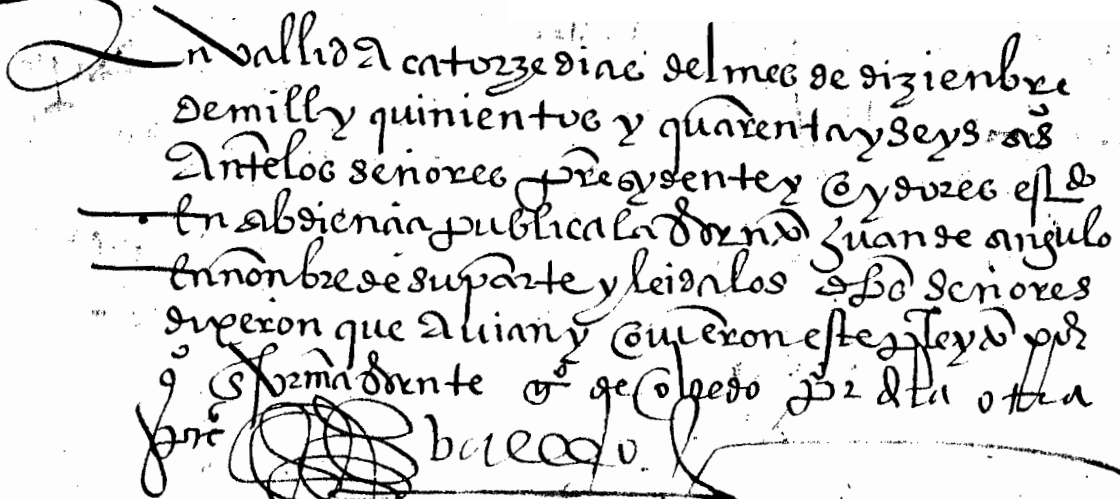 En vallid a catorze dias del mes de dizienbre
de mill y quinientos y quarenta y seys as
Antelos señores presydente y oydores estdo
En abdiençia publica la Juan de angulo
En nonbre de su parte y leida los dhos señores
dixeron que avian y ovieron este pleyto por
de por dela otra
parte